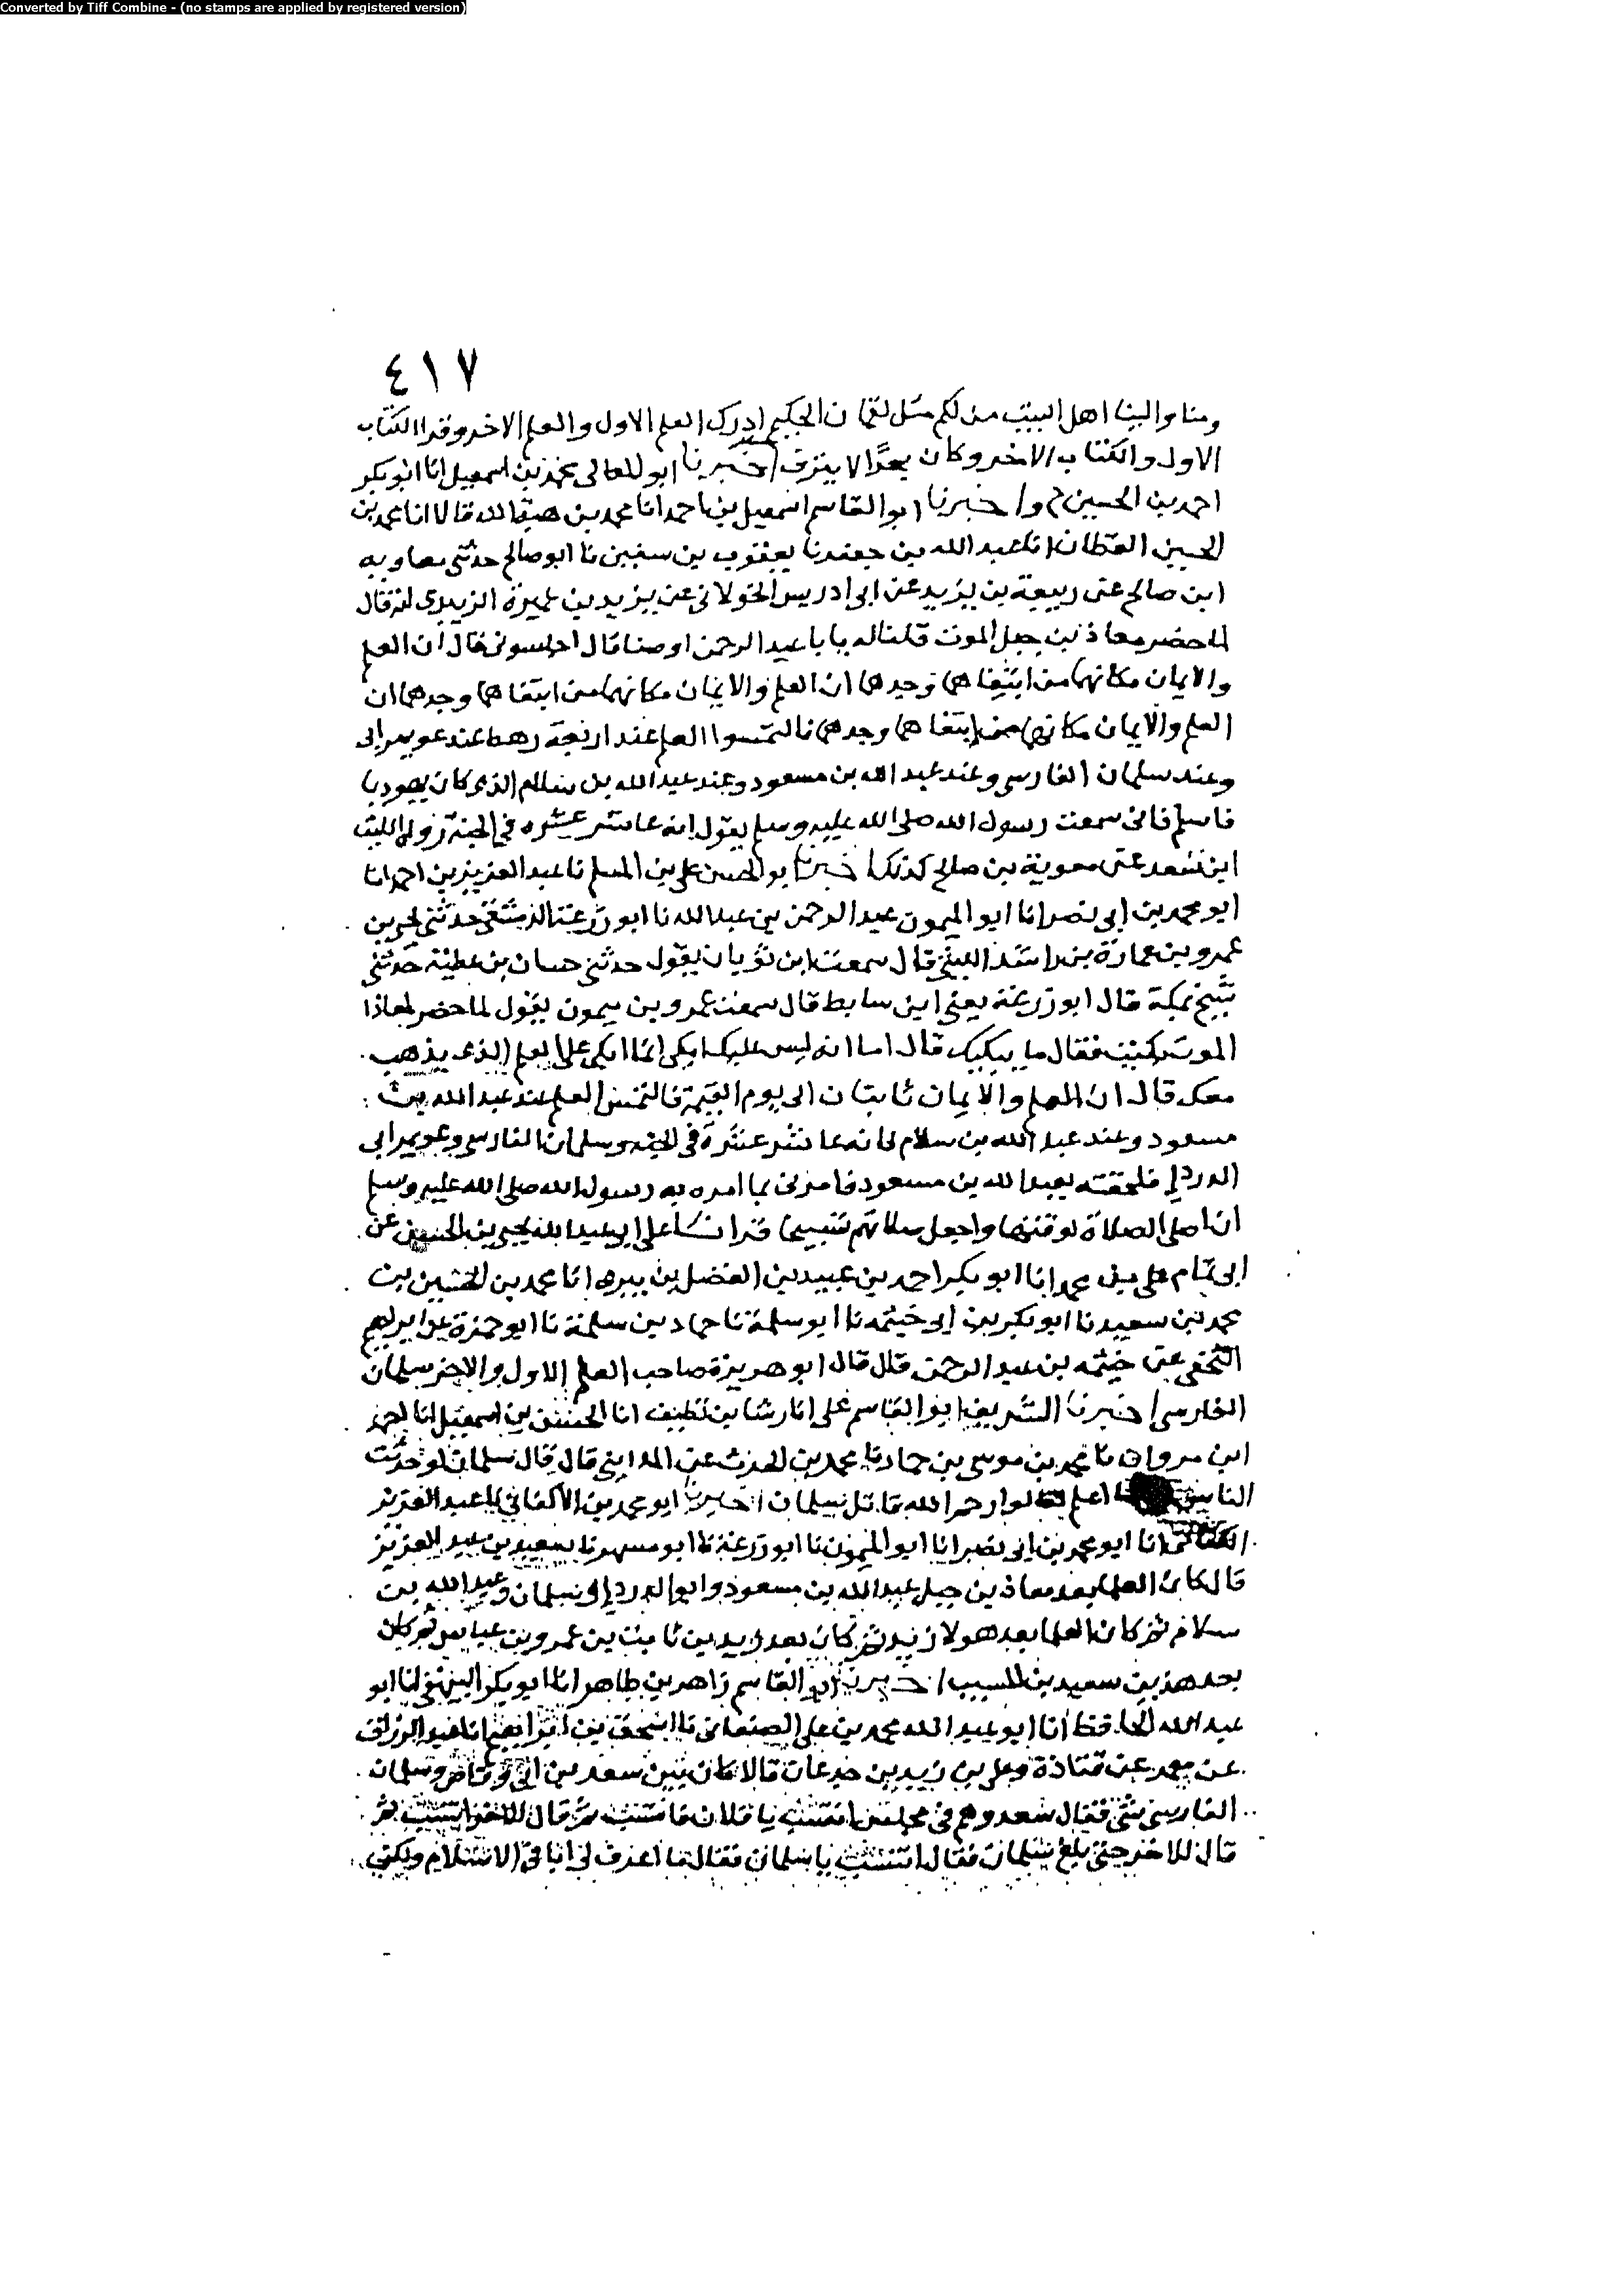 Converted by Tiff Combine - (no stamps are applied by registered version)
٤١٧
ومنا والينا اهل البيت من لكم مثل لقمان الحكيم ادرك العلم الاول والعلم الاخر وقرا الكتاب
الاول والكتاب الاخر وكان بحرًا لا ينزف اخبرنا ابو المعالى محمد بن اسمعيل انا ابو بكر
احمد بن الحسين ح واخبرنا ابو القاسم اسمعيل بن احمد انا محمد بن هبة الله قالا انا محمد بن
الحسين القطان انا عبد الله بن جعفر نا يعقوب بن سفين نا ابو صالح حدثنى معاويه
ابن صالح عن ربيعة بن يزيد عن ابى ادريس الخولانى عن يزيد بن عميرة الزبيدى انه قال
لما حضر معاذ بن جبل الموت قلنا له يا با عبد الرحمن اوصنا قال اجلسونى قال ان العلم
والايمان مكانهما من ابتغاهما وجدهما ان العلم والايمان مكانهما من ابتغاهما وجدهما ان
العلم والايمان مكانهما من ابتغاهما وجدهما فالتمسوا العلم عند اربعة رهط عند عويمر ابى
وعند سلمان الفارسى وعند عبد الله بن مسعود وعند عبد الله بن سلام الذى كان يهوديا
فاسلم فانى سمعت رسول الله صلى الله عليه وسلم يقول انه عاشر عشره فى الجنة رواه الليث
ابن سعد عن معوية بن صالح كذلك اخبرنا ابو الحسن على بن المسلم نا عبد العزيز بن احمد انا
ابو محمد بن ابى نصر انا ابو الميمون عبد الرحمن بن عبد الله نا ابو زرعة الدمشقى حدثنى
عمرو بن عمارة بن راشد الليثى قال سمعت ابن ثوبان يقول حدثنى حسان بن عطية حدثنى
شيخ بمكة قال ابو زرعة يعنى ابن سابط قال سمعت عمرو بن ميمون يقول لما حضر معاذا
الموت بكيت فقال ما يبكيك قال اما انه ليس عليك ابكى انما ابكى على العلم الذى يذهب
معك قال ان العلم والايمان ثابتان الى يوم القيمة فالتمس العلم عند عبد الله بن
مسعود وعند عبد الله بن سلام فانه عاشر عشرة فى الجنه وسلمان الفارسى وعويمر ابى
الدردا فلحقت بعبد الله بن مسعود فامرنى بما امره به رسول الله صلى الله عليه وسلم
ان اصلى الصلاة لوقتها واجعل صلاتهم تسبيحا قرانا على ابى عبد الله يحيى بن الحسن عن
ابى تمام على بن محمد انا ابو بكر احمد بن عبيد بن الفضل بن بيرى انا محمد بن الحسين بن
محمد بن سعيد نا ابو بكر بن ابى خيثمه نا ابو سلمة نا حماد بن سلمة نا ابو حمزة عن ابرهيم
النخعى عن خيثمه بن عبد الرحمن قال قال ابو هريرة صاحب العلم الاول والاخر سلمان
الفارسى اخبرنا الشريف ابو القاسم على انا رشا بن نظيف انا الحسن بن اسمعيل انا احمد
ابن مروان نا محمد بن موسى بن حماد نا محمد بن الحرث عن المداينى قال قال سلمان لو حدثت
الناس اعلم لقالوا رحم الله قاتل سلمان اخبرنا ابو محمد بن الاكفانى نا عبد العزيز
الكتانى انا ابو محمد بن ابى نصر انا ابو الميمون نا ابو زرعة نا ابو مسهر نا سعيد بن عبد العزيز
قال كان العلما بعد معاذ بن جبل عبد الله بن مسعود وابو الدردا وسلمان وعبد الله بن
سلام ثم كان العلما بعد هولا زيد ثم كان بعد زيد بن ثابت بن عمرو بن عباس ثم كان
بعد هذين سعيد بن المسيب اخبرنا ابو القاسم زاهر بن طاهر انا ابو بكر البيهقى انا ابو
عبد الله الحافظ انا ابو عبد الله محمد بن على الصنعانى نا اسحق بن ابراهيم انا عبد الرزاق
عن معمر عن قتادة وعلى بن زيد بن جدعان قالا كان بين سعد بن ابى وقاص وسلمان
الفارسى شى فقال سعد وهم فى مجلس انتسب يا فلان فانتسب ثم قال للاخر انتسب ثم
قال للاخر حتى بلغ سلمان فقال انتسب يا سلمان فقال ما اعرف لى ابا فى الاسلام ولكنى